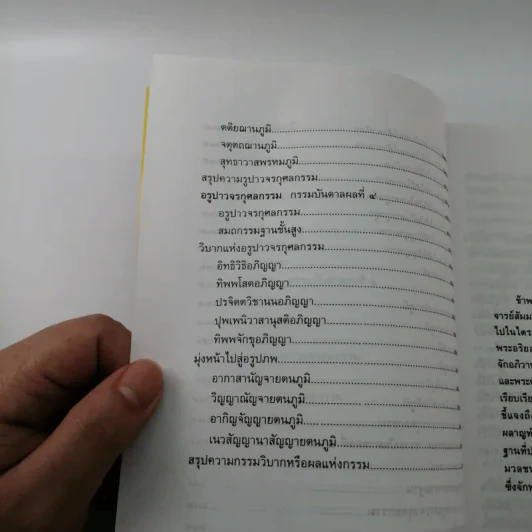 ตติยฌานภูมิ
จตุตถฌานภูมิ
สุทธาวาสพรหมภูมิ
สรุปความรูปาวจรกุศลกรรม
อรูปาวจรกุศลกรรม กรรมบันดาลผลที่ ๔
อรูปาวจรกุศลกรรม
สมถกรรมฐานชั้นสูง
วิบากแห่งอรูปาวจรกุศลกรรม
อิทธิวิธีอภิญญา
ทิพพโสตอภิญญา
ปรจิตตวิชานนอภิญญา
ปุพเพนิวาสานุสติอภิญญา
ทิพพจักขุอภิญญา
มุ่งหน้าไปสู่อรูปภพ
อากาสานัญจายตนภูมิ
วิญญาณัญจายตนภูมิ
อากิญจัญญายตนภูมิ
เนวสัญญานาสัญญายตนภูมิ
สรุปความกรรมวิบากหรือผลแห่งกรรม
ข้าพ
จารย์สัมม
ไปในไตร
พระอริย
จักอภิวา
และพระ
เรียบเรีย
ชี้แจงถึง
ผลาญทํ
ฐานที่ป
มวลชน
ซึ่งจัก